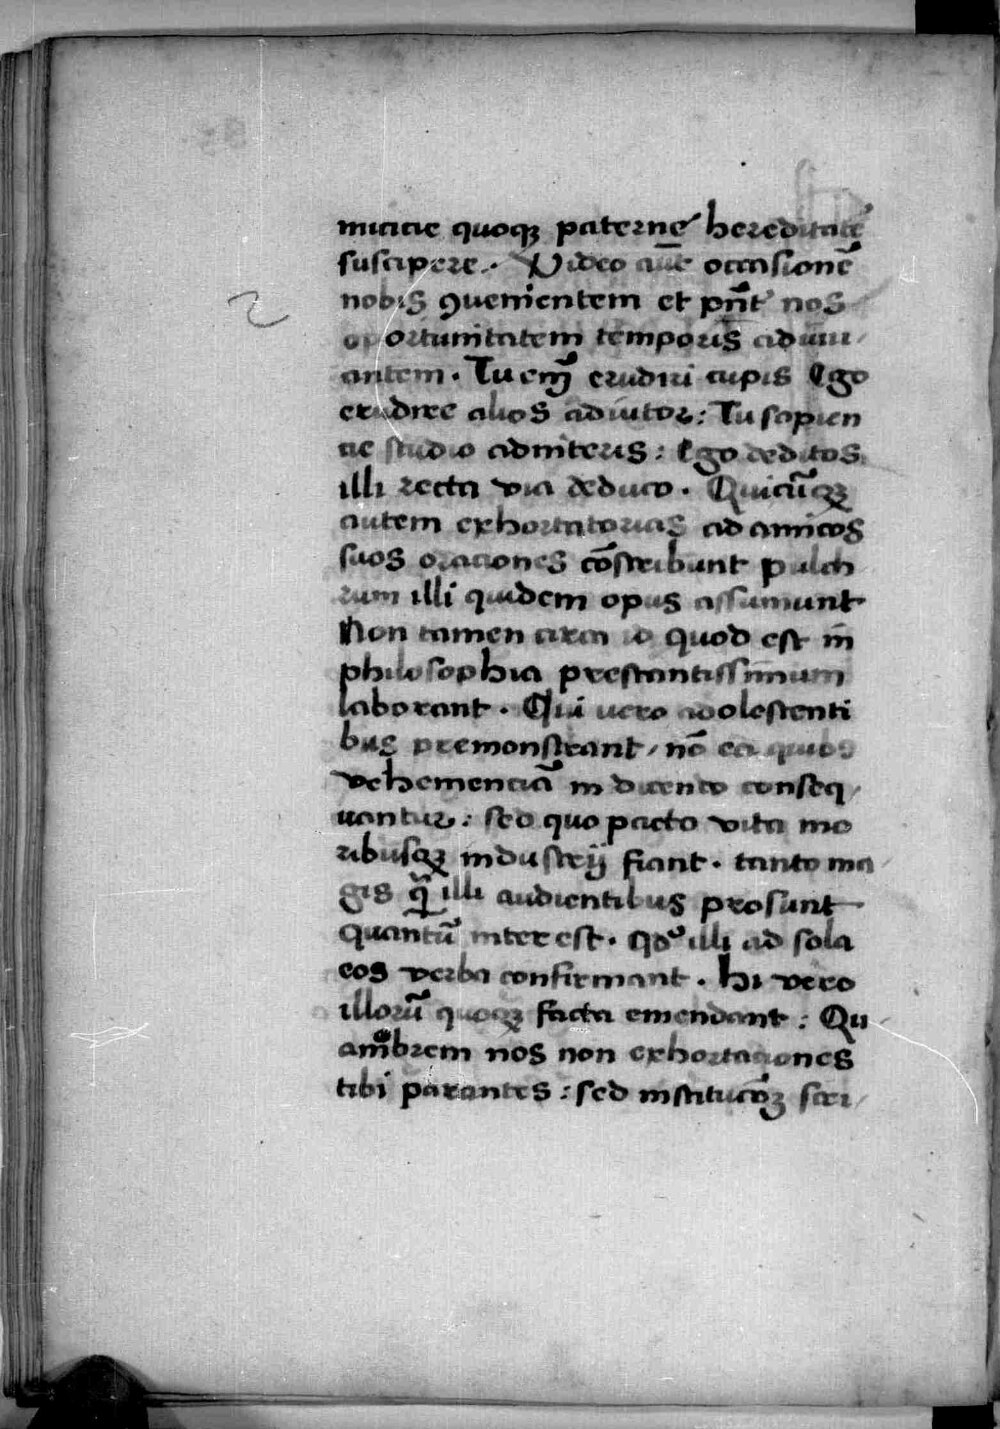 micicie quoqꝫ paterne hereditatē
suscipere. Video aūt occasionē
nobis ꝯuenientem et pn̄t nos
oportunitatem temporis adiuu/
antem. Tu em̄ erudiri cupis Ego
erudire alios adiutor: Tu sapien
cie studio adniteris: Ego deditos
illi recta via deduco. Quicūqꝫ
autem exhortatorias ad amicos
suos oraciones cōscribunt pulch
rum illi quidem opus assumunt
Non tamen circa id quod est in
philosophia prestantissimum
laborant. Qui vero adolescenti
bus premonstrant / nō ea quibꝯ
vehemenciā in dicendo conseq/
uantur: sed quo pacto vita mo
ribusqꝫ industrij fiant. tanto ma
gis qͣ̄ illi audientibus prosunt
quantū interest. qd' illi ad sola
eos verba confirmant. hi vero
illorū quoqꝫ facta emendant: Qu
amobrem nos non exhortaciones
tibi parantes: sed institucōꝫ scri/